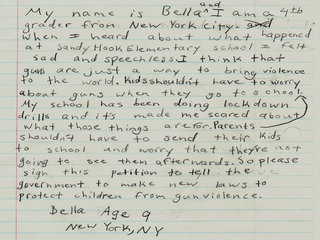 My name is Bella and I am a 4th
grader from New York City.
When I heard about what happened
at Sandy Hook Elementary school I felt
sad and speechless. I think that
guns are just a way to bring violence
to the world. Kids shouldn't have to worry
about guns when they go to school.
My school has been doing lockdown
drills and it's made me scared about
what those things are for. Parents
shouldn't have to send their kids
to school and worry that they're not
going to see them afterwards. So please
sign this petition to tell the
government to make new laws to
protect children from gun violence.
Bella Age 9
New York, NY